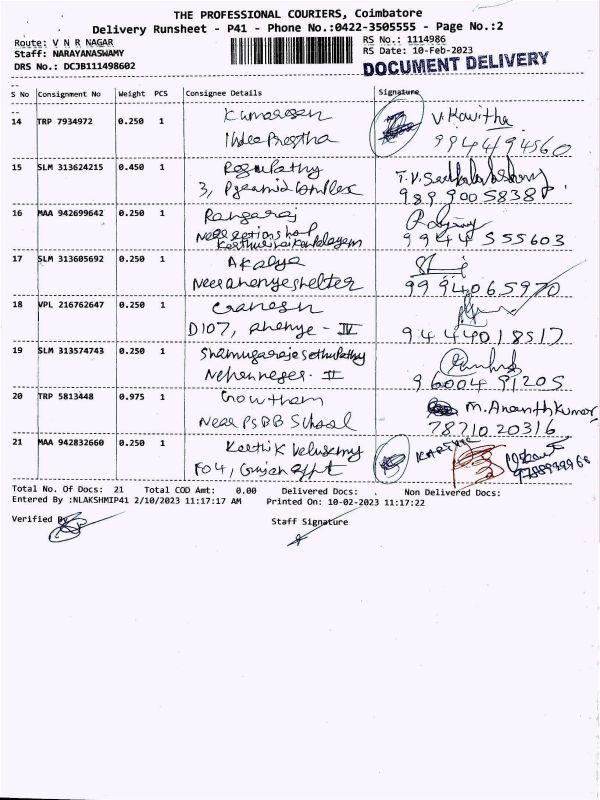 THE PROFESSIONAL COURIERS, Coimbatore
Delivery Runsheet - P41 - Phone No.:0422-3505555 - Page No.:2
Route: V N R NAGAR
Staff: NARAYANASWAMY
DRS No.: DCJB111498602
RS No.: 1114986
RS Date: 10-Feb-2023
DOCUMENT DELIVERY
S No Consignment No Weight PCS Consignee Details Signature
14 TRP 7934972 0.250 1 Kumaresan V. Kavitha
9944494560
15 SLM 313624215 0.450 1 Regupathy
3, Pyramid Complex 9899005838
16 MAA 942699642 0.250 1 Rangaraj
Near 9944555603
17 SLM 313605692 0.250 1 Akalya
Near shelter 9994065970
18 VPL 216762647 0.250 1 Ganesh
D107, - IV 9444018517
19 SLM 313574743 0.250 1
Nehrunagar - II 9600491205
20 TRP 5813448 0.975 1 Gowtham M. Ananth Kumar
Near PSBB School 7871020316
21 MAA 942832660 0.250 1 Karthik Velusamy KARTHIK
F04,
Total No. Of Docs: 21 Total COD Amt: 0.00 Delivered Docs: . Non Delivered Docs:
Entered By :NLAKSHMIP41 2/10/2023 11:17:17 AM Printed On: 10-02-2023 11:17:22
Verified By
Staff Signature